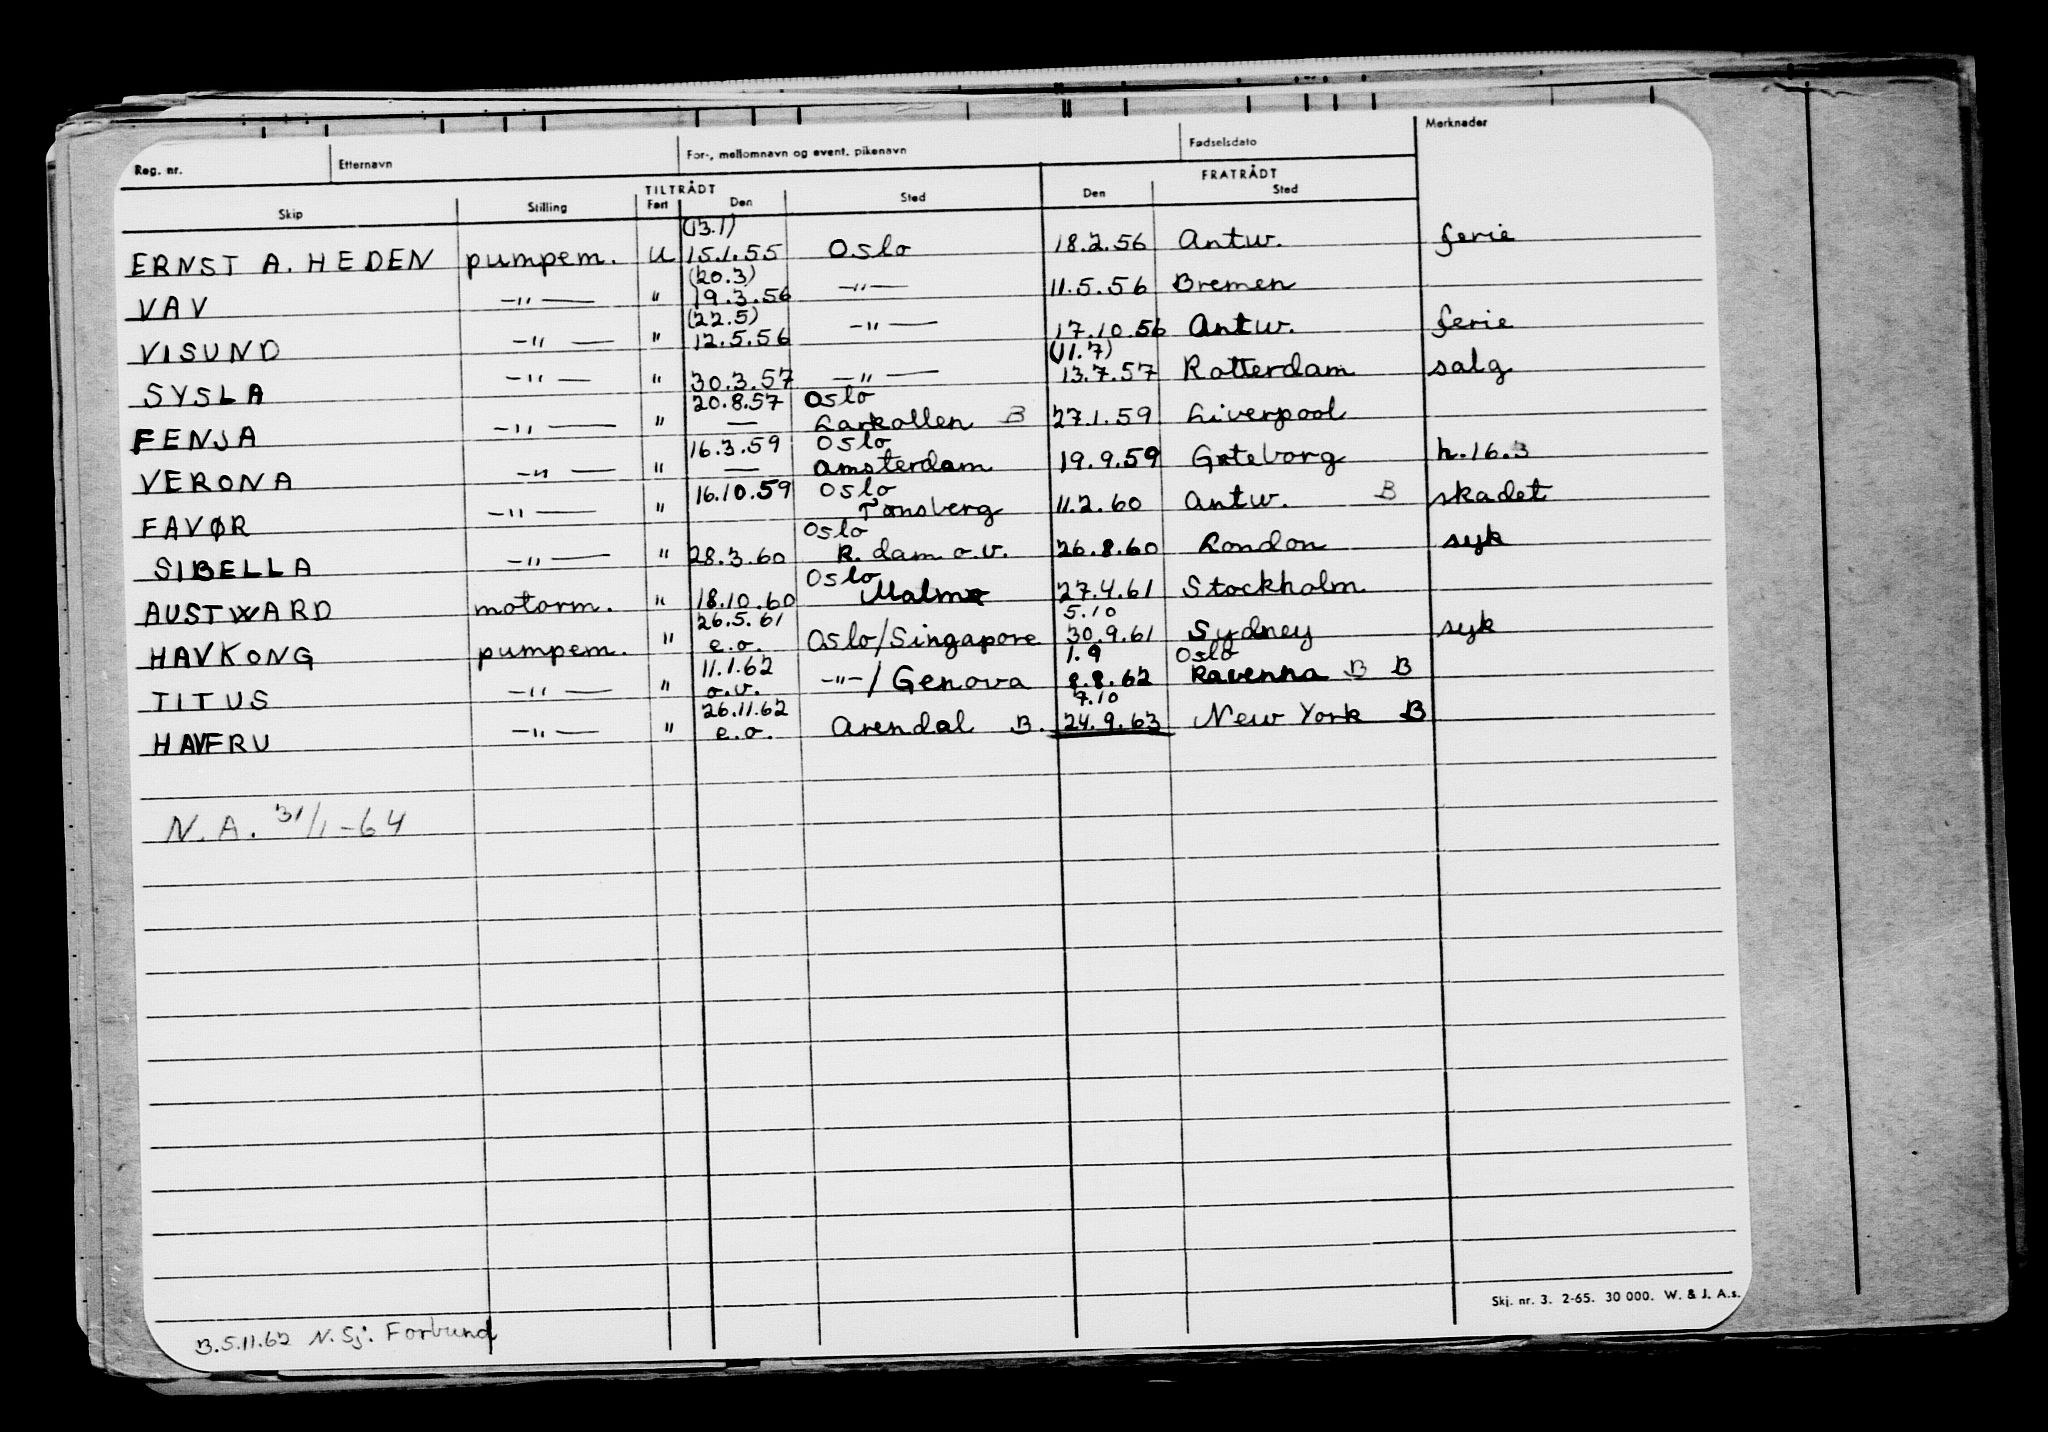 Reg. nr. Etternavn For-, mellomnavn og event. pikenavn Fødselsdato Merknader
TILTRÅDT FRATRÅDT
Skip Stilling Fart Den Sted Den Sted
(13.1)
ERNST A. HEDEN pumpem. U 15.1.55 Oslo 18.2.56 Antw. ferie
(20.3)
VAV -"- " 19.3.56 -"- 11.5.56 Bremen
(22.5)
VISUND -"- " 12.5.56 -"- 17.10.56 Antw. ferie
(11.7)
SYSLA -"- " 30.3.57 -"- 13.7.57 Rotterdam salg
20.8.57 Oslo
FENJA -"- " — Larkollen B 27.1.59 Liverpool
16.3.59 Oslo
VERONA -"- " — Amsterdam 19.9.59 Gøteborg h.16.3
16.10.59 Oslo
FAVØR -"- " Tønsberg 11.2.60 Antw. B skadet
Oslo
SIBELLA -"- " 28.3.60 R.dam o.v. 26.8.60 London syk
Oslo
AUSTWARD motorm. " 18.10.60 Malmø 27.4.61 Stockholm
26.5.61 5.10
HAVKONG pumpem. " e.o. Oslo/Singapore 30.9.61 Sydney syk
11.1.62 1.9 Oslo
TITUS -"- " o.v. -"-/Genova 8.8.62 Ravenna B B
26.11.62 7.10
HAVFRU -"- " e.o. Arendal B. 24.9.63 New York B
N.A. 31/1-64
Skj. nr. 3. 2-65. 30 000. W. & J. A.s.
B.5.11.62 N. Sj. Forbund